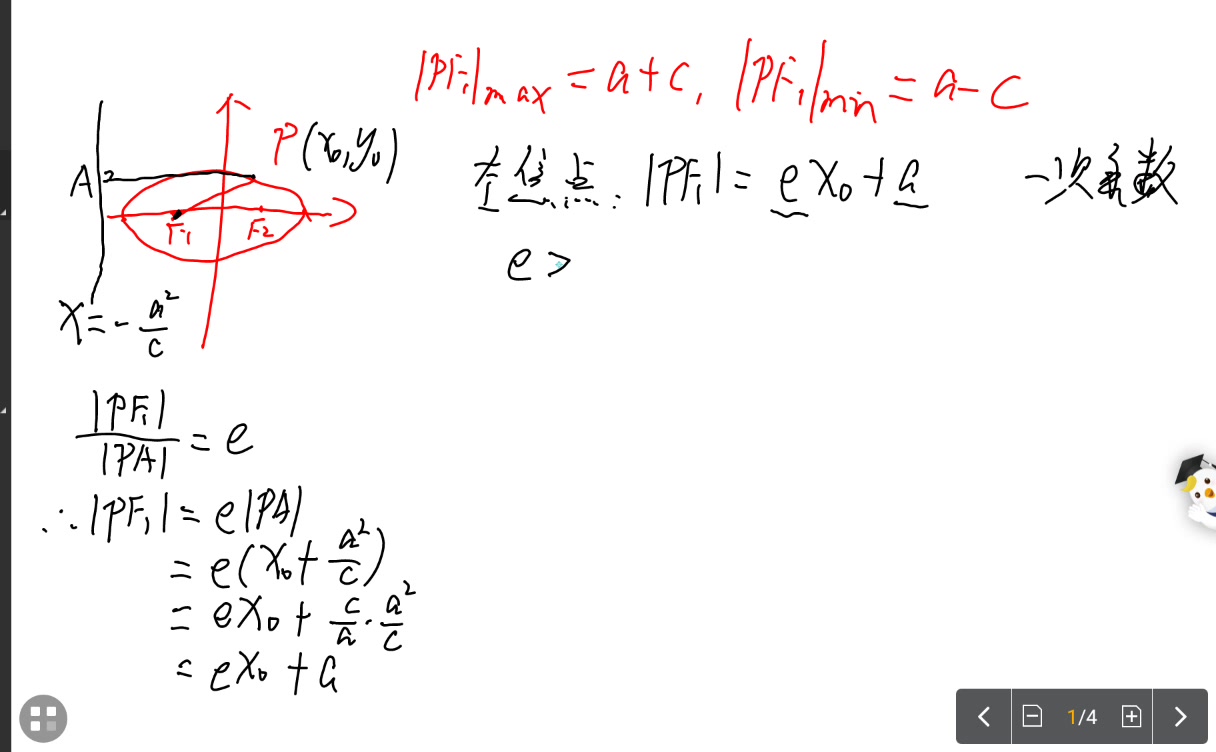 |PF₁|max = a+c, |PF₁|min = a-c
P(x₀,y₀)
A
F₁ F₂
左焦点: |PF₁| = ex₀+a 一次函数
e>
x=-a²/c
|PF₁|/|PA| = e
∴|PF₁| = e|PA|
= e(x₀+a²/c)
= ex₀+c/a·a²/c
= ex₀+a
1/4